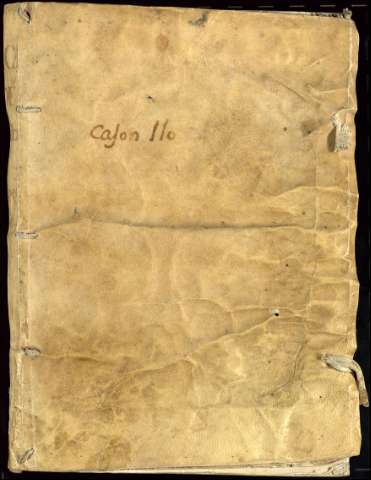 Cajon 110